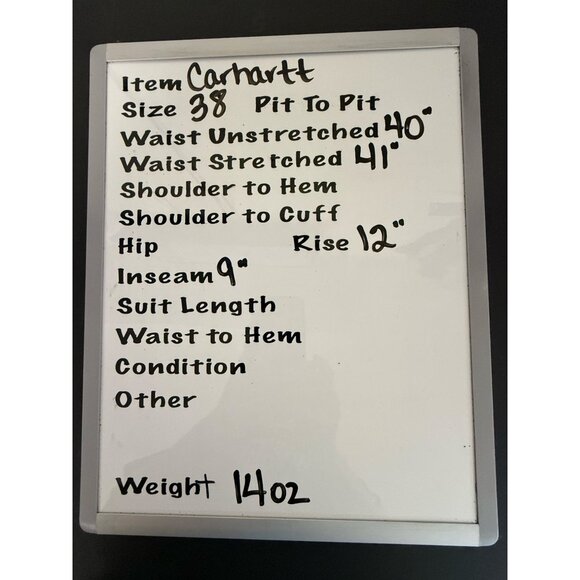 Item Carhartt
Size 38 Pit To Pit
Waist Unstretched 40"
Waist Stretched 41"
Shoulder to Hem
Shoulder to Cuff
Hip Rise 12"
Inseam 9"
Suit Length
Waist to Hem
Condition
Other
Weight 14oz